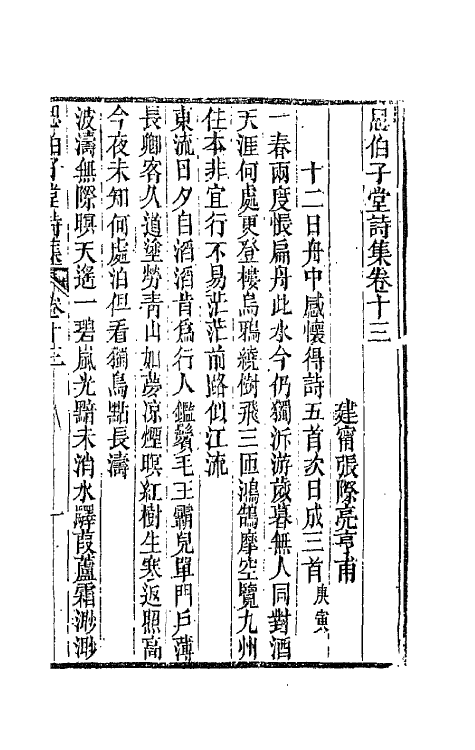 思伯子堂詩集卷十三
建甯張際亮亨甫
十二日舟中感懷得詩五首次日成三首庚寅
一春兩度悵扁舟此水今仍獨泝游歲暮無人同對酒
天涯何處更登樓烏鵶繞樹飛三匝鴻鵠摩空覽九州
住本非宜行不易茫茫前路似江流
東流日夕自滔滔肯為行人鑑鬢毛王霸兒單門戶薄
長卿客久道塗勞青山如夢涼煙暝紅樹生寒返照高
今夜未知何處泊但看獨鳥點長濤
波濤無際暝天遙一碧嵐光黯未消水驛葭蘆霜渺渺
思伯子堂詩集 卷十三 一